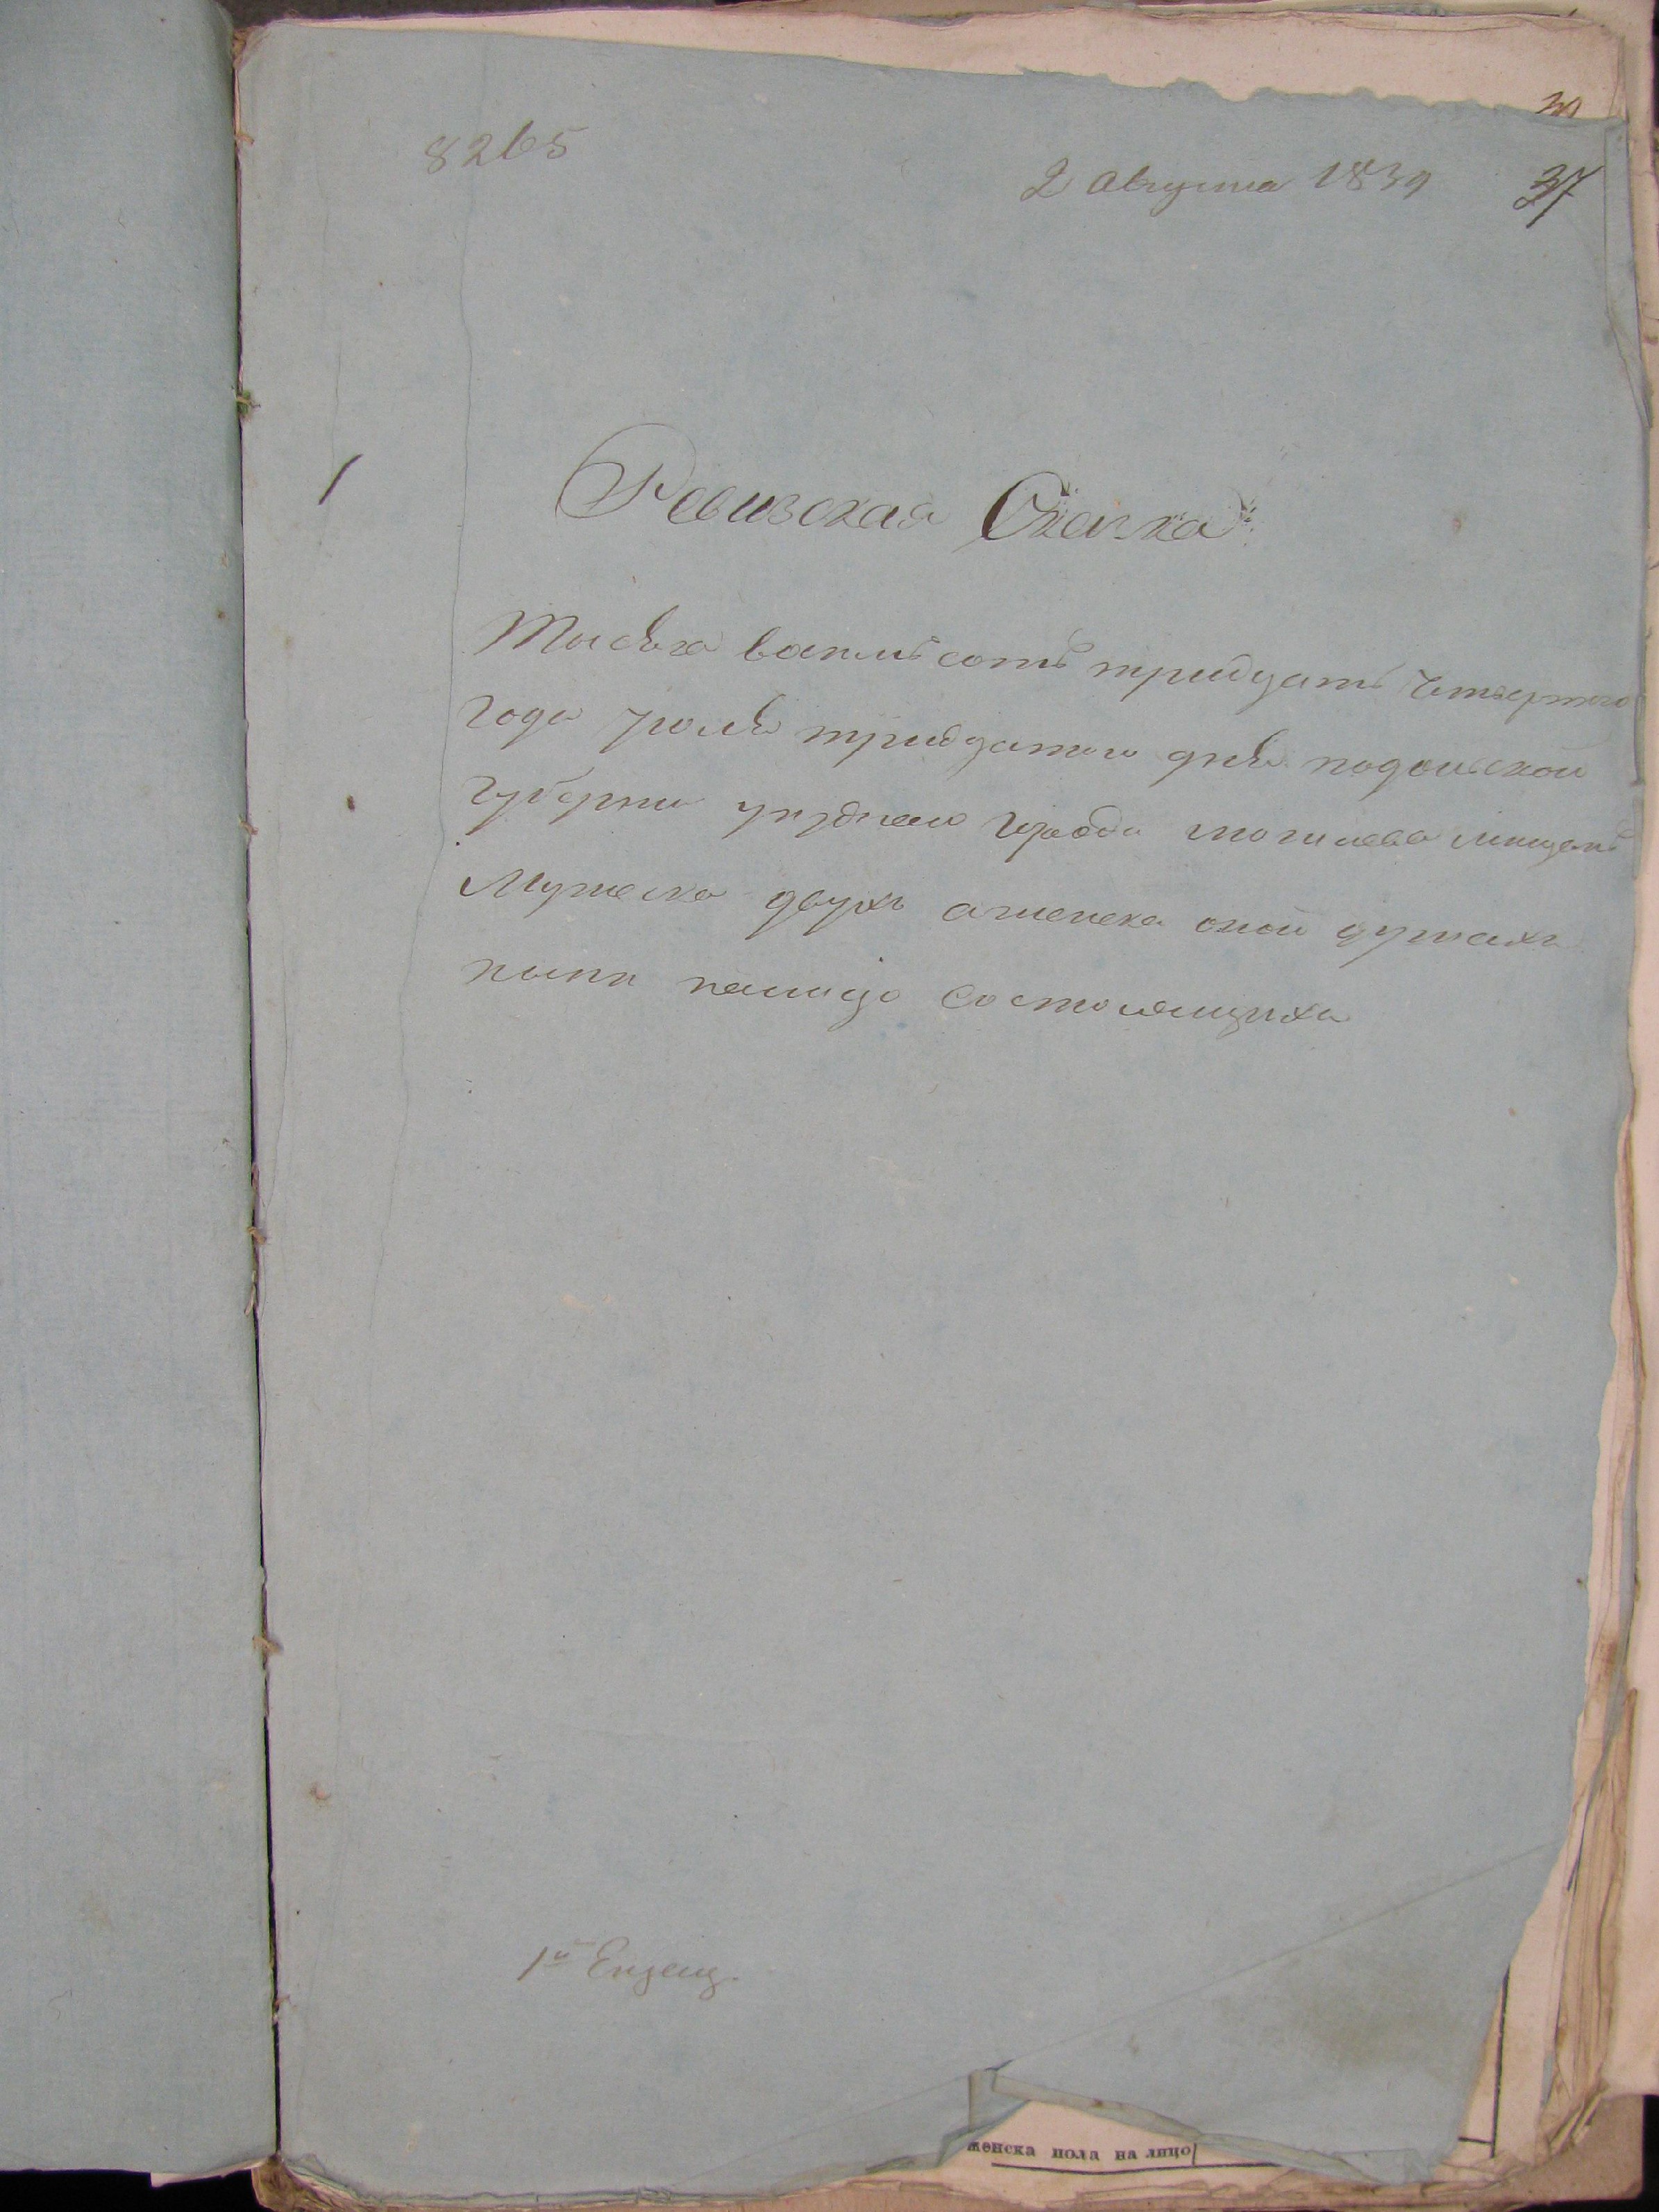 30
8265
2 Августа 1834
37
1
Ревизская Сказка
Тысяча восемь сотъ тридцать Четвертого
года Июля тридцатого дня подольской
Губернии уезднаго города могилева мещанъ
Мужеска двухъ аженска оной душахъ
ныни налицо Состоящихъ
1й
женска пола на лицо